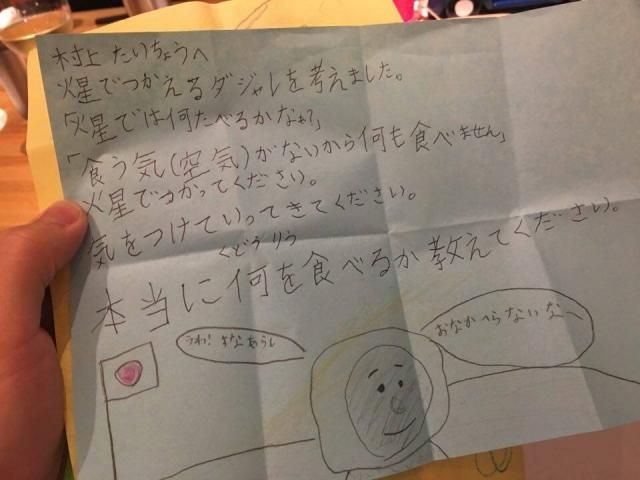 村上 たいちょうへ
火星でつかえるダジャレを考えました。
「火星では何たべるかなぁ?」
「食う気(空気)がないから何も食べません」
火星でつかってください。
気をつけていってきてください。
本当に何を食べるか教えてください。
うわ! すなあらし
おなかへらないなへ